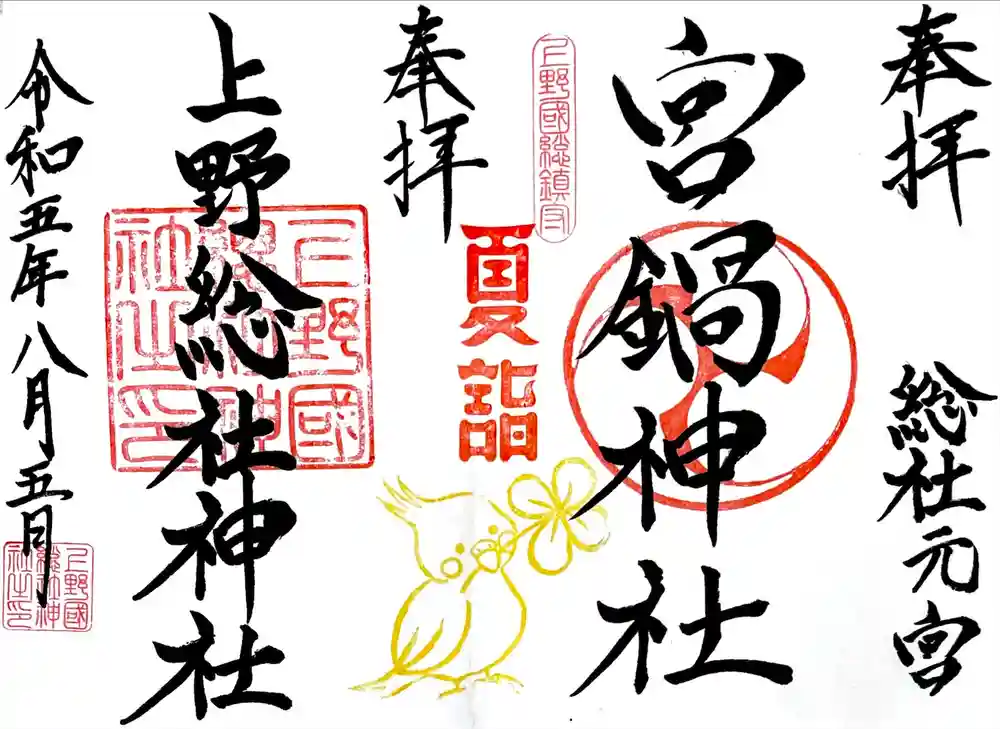 奉拝
総社元宮
宮鍋神社
上野國総鎮守
奉拝
夏詣
上野総社神社
上野國
総社神
社之印
令和五年八月五日
上野國
総社神
社之印